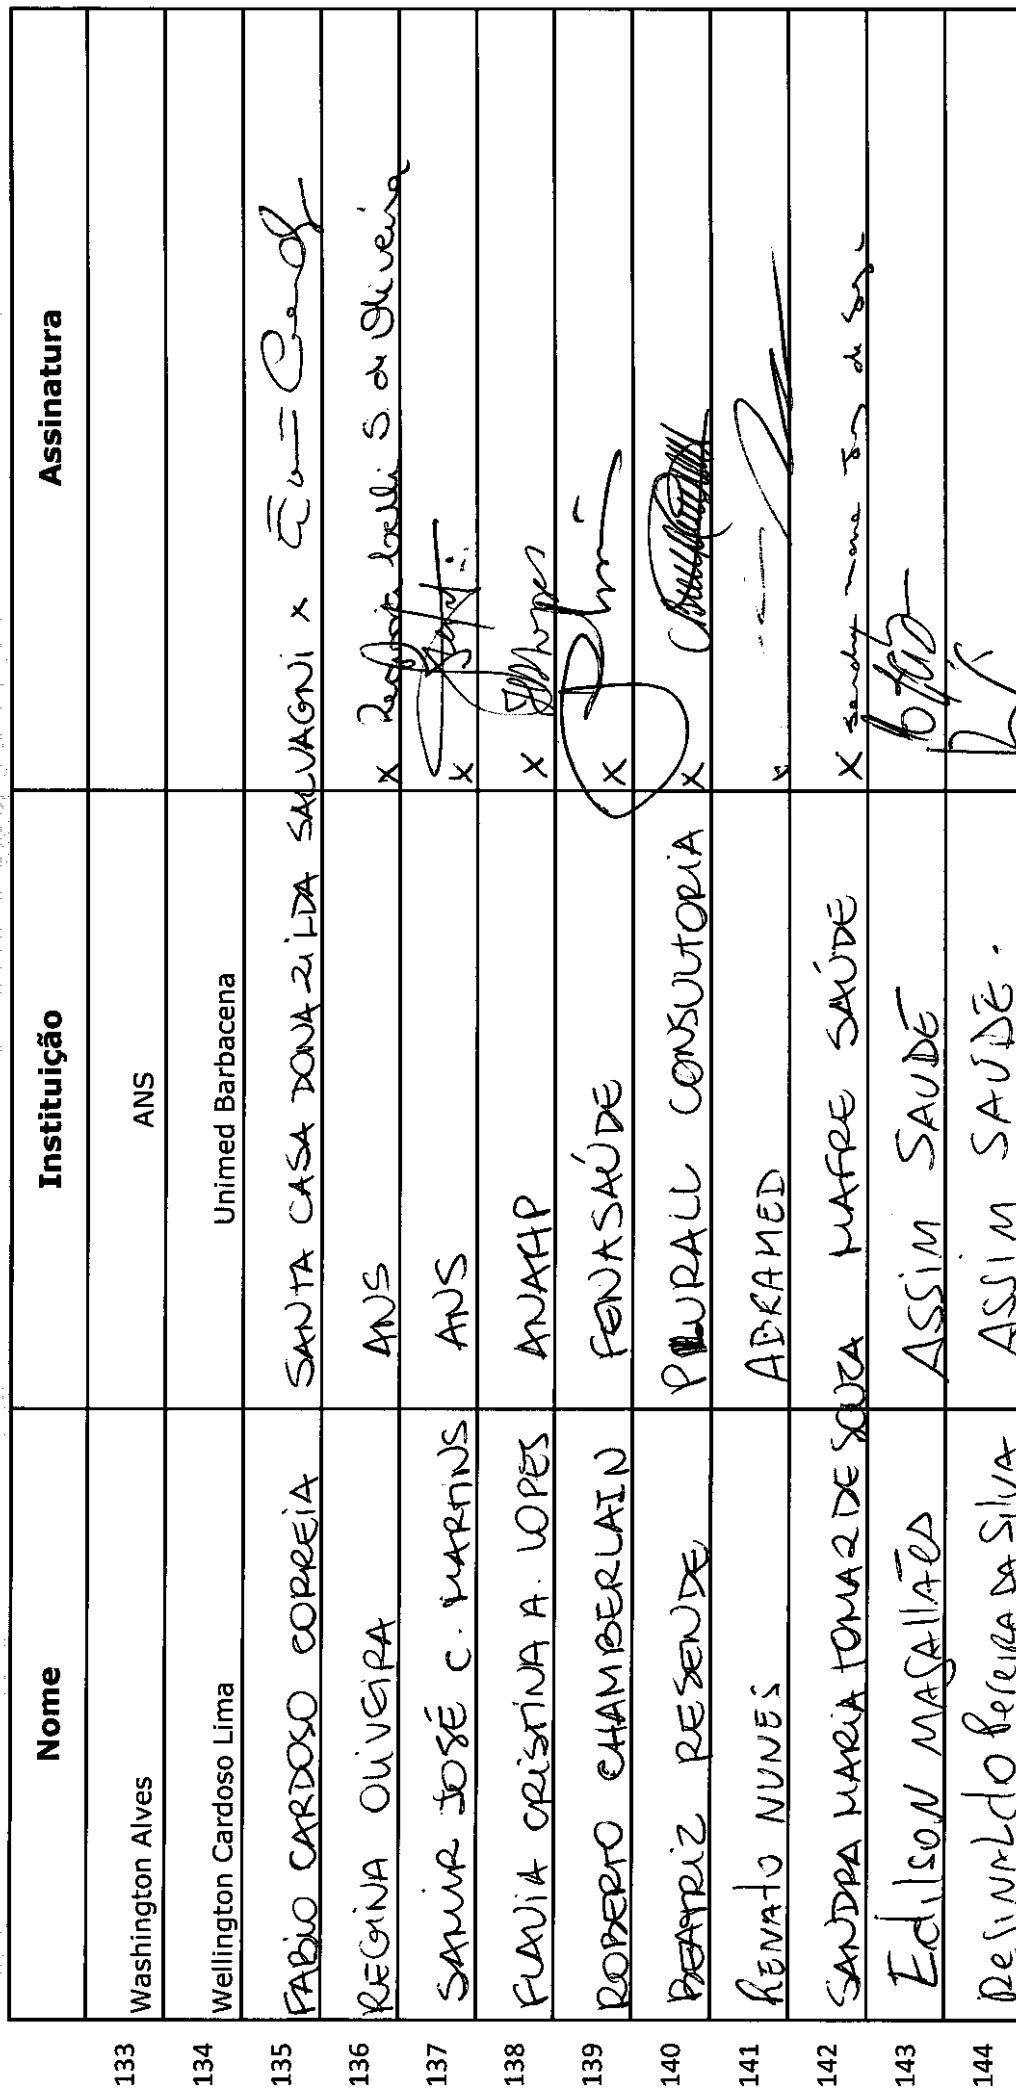 Nome Instituição Assinatura
133 Washington Alves ANS
134 Wellington Cardoso Lima Unimed Barbacena
135 FABIO CARDOSO CORREIA SANTA CASA DONA ZILDA SALVAGNI x
136 REGINA OLIVEIRA ANS x S. de Oliveira
137 SAMIR JOSÉ C. MARTINS ANS x
138 FLAVIA CRISTINA A. LOPES ANAHP x
139 ROBERTO CHAMBERLAIN FENASAÚDE x
140 BEATRIZ RESENDE PLURALL CONSULTORIA x
141 RENATO NUNES ABRAMED x
142 SANDRA MARIA TOMAZ DE SOUZA MAFRE SAÚDE X
143 Edilson MAGAllÃes ASSIM SAUDE
144 ReGINALdo PereirA DA SilvA ASSIM SAUDE.